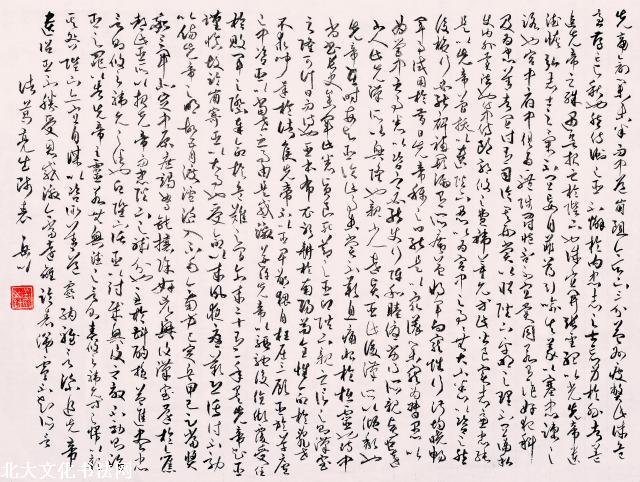 先帝創業未半而中道崩殂今天下三分益州疲弊此誠危
急存亡之秋也然侍衛之臣不懈於內忠志之士忘身於外者蓋
追先帝之殊遇欲報之於陛下也誠宜開張聖聽以光先帝遺
德恢弘志士之氣不宜妄自菲薄引喻失義以塞忠諫之
路也宮中府中俱為一體陟罰臧否不宜異同若有作奸犯科
及為忠善者宜付有司論其刑賞以昭陛下平明之理不宜偏私
使內外異法也侍中侍郎郭攸之費禕董允等此皆良實志慮忠純
是以先帝簡拔以遺陛下愚以為宮中之事事無大小悉以咨之然
後施行必能裨補闕漏有所廣益將軍向寵性行淑均曉暢
軍事試用於昔日先帝稱之曰能是以眾議舉寵為督愚以
為營中之事悉以咨之必能使行陣和睦優劣得所親賢臣遠
小人此先漢所以興隆也親小人遠賢臣此後漢所以傾頹也
先帝在時每與臣論此事未嘗不歎息痛恨於桓靈也侍中
尚書長史參軍此悉貞良死節之臣願陛下親之信之則漢室
之隆可計日而待也臣本布衣躬耕於南陽苟全性命於亂世
不求聞達於諸侯先帝不以臣卑鄙猥自枉屈三顧臣於草廬
之中咨臣以當世之事由是感激遂許先帝以驅馳後值傾覆受任
於敗軍之際奉命於危難之間爾來二十有一年矣先帝知臣
謹慎故臨崩寄臣以大事也受命以來夙夜憂歎恐託付不效
以傷先帝之明故五月渡瀘深入不毛今南方已定兵甲已足當獎
率三軍北定中原庶竭駑鈍攘除奸凶興復漢室還於舊
都此臣所以報先帝而忠陛下之職分也至於斟酌損益進盡忠
言則攸之禕允之任也願陛下託臣以討賊興復之效不效則治
臣之罪以告先帝之靈若無興德之言則責攸之禕允等之慢以彰
其咎陛下亦宜自謀以咨諏善道察納雅言深追先帝
遺詔臣不勝受恩感激今當遠離臨表涕零不知所言
諸葛亮出師表
北大文化书法网